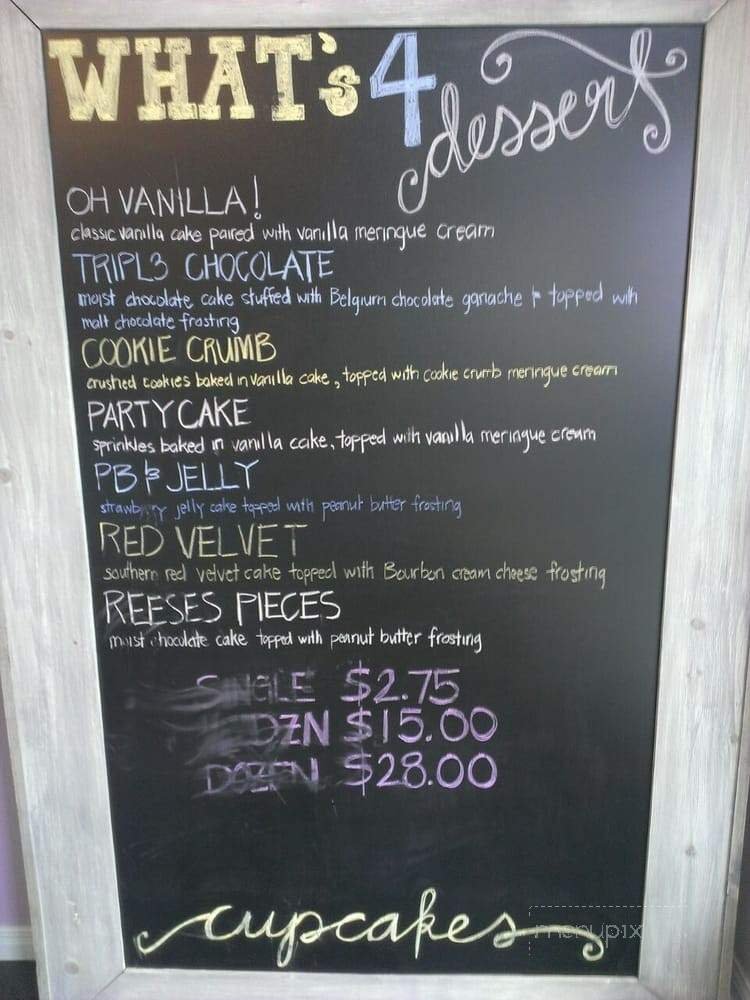 WHAT's 4
dessert
OH VANILLA!
classic vanilla cake paired with vanilla meringue cream
TRIPL3 CHOCOLATE
moist chocolate cake stuffed with Belgium chocolate ganache & topped with
malt chocolate frosting
COOKIE CRUMB
crushed cookies baked in vanilla cake, topped with cookie crumb meringue cream
PARTY CAKE
sprinkles baked in vanilla cake, topped with vanilla meringue cream
PB & JELLY
strawberry jelly cake topped with peanut butter frosting
RED VELVET
southern red velvet cake topped with Bourbon cream cheese frosting
REESES PIECES
moist chocolate cake topped with peanut butter frosting
SINGLE $2.75
DZN $15.00
DOZEN $28.00
cupcakes
menupix